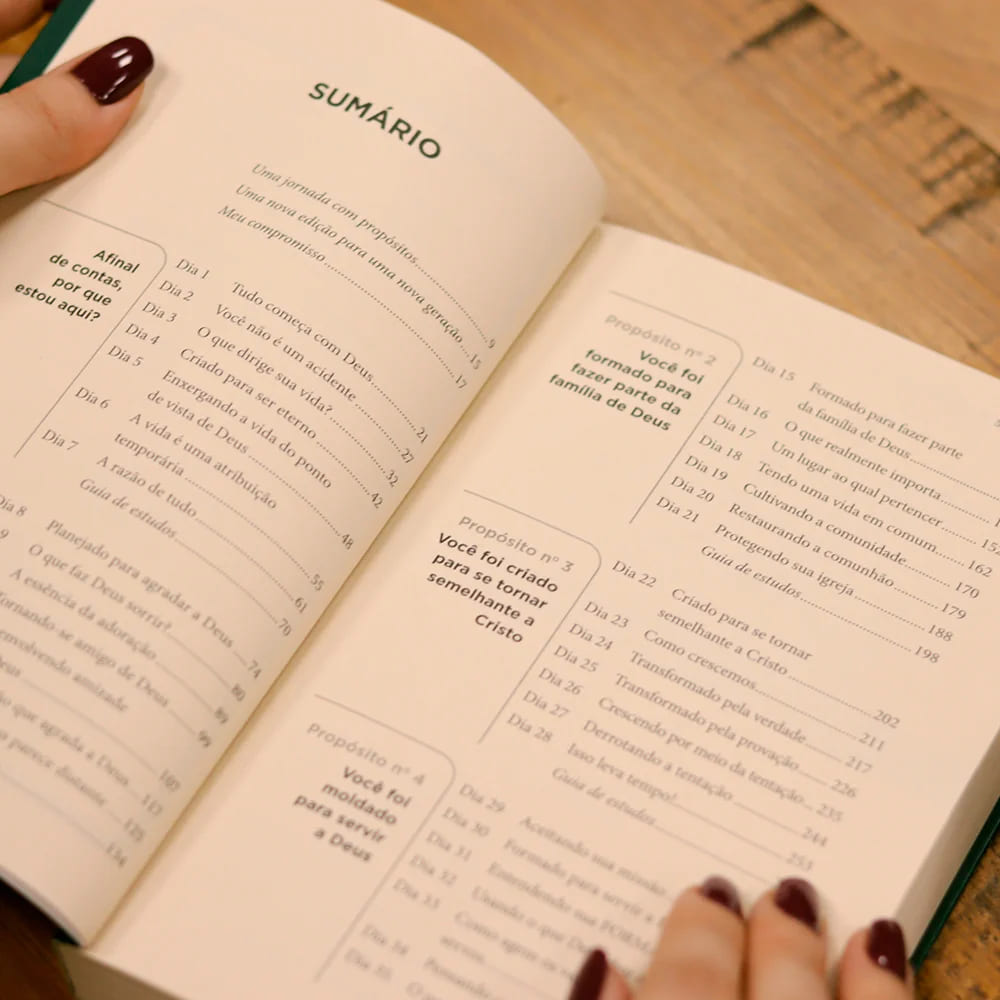 SUMÁRIO
Uma jornada com propósitos 9
Uma nova edição para uma nova geração 15
Meu compromisso 17
Afinal
de contas,
por que
estou aqui?
Dia 1 Tudo começa com Deus 21
Dia 2 Você não é um acidente 27
Dia 3 O que dirige sua vida? 32
Dia 4 Criado para ser eterno 42
Dia 5 Enxergando a vida do ponto
de vista de Deus 48
Dia 6 A vida é uma atribuição
temporária 55
Dia 7 A razão de tudo 61
Guia de estudos 70
Dia 8 Planejado para agradar a Deus 74
9 O que faz Deus sorrir? 80
A essência da adoração 89
Tornando-se amigo de Deus 99
envolvendo amizade
Deus 107
que agrada a Deus 117
parece distante 125
134
Propósito nº 2
Você foi
formado para
fazer parte da
família de Deus
Dia 15 Formado para fazer parte
da família de Deus
Dia 16 O que realmente importa
Dia 17 Um lugar ao qual pertencer 152
Dia 18 Tendo uma vida em comum 162
Dia 19 Cultivando a comunidade 170
Dia 20 Restaurando a comunhão 179
Dia 21 Protegendo sua igreja 188
Guia de estudos 198
Propósito nº 3
Você foi criado
para se tornar
semelhante a
Cristo
Dia 22 Criado para se tornar
semelhante a Cristo 202
Dia 23 Como crescemos 211
Dia 24 Transformado pela verdade 217
Dia 25 Transformado pela provação 226
Dia 26 Crescendo por meio da tentação 235
Dia 27 Derrotando a tentação 244
Dia 28 Isso leva tempo! 253
Guia de estudos
Propósito nº 4
Você foi
moldado
para servir
a Deus
Dia 29 Aceitando sua missão
Dia 30 Formado para servir a
Dia 31 Entendendo sua FORMA
Dia 32 Usando o que De
Dia 33 Como agem os
servos
Dia 34 Pensando
Dia 35 O